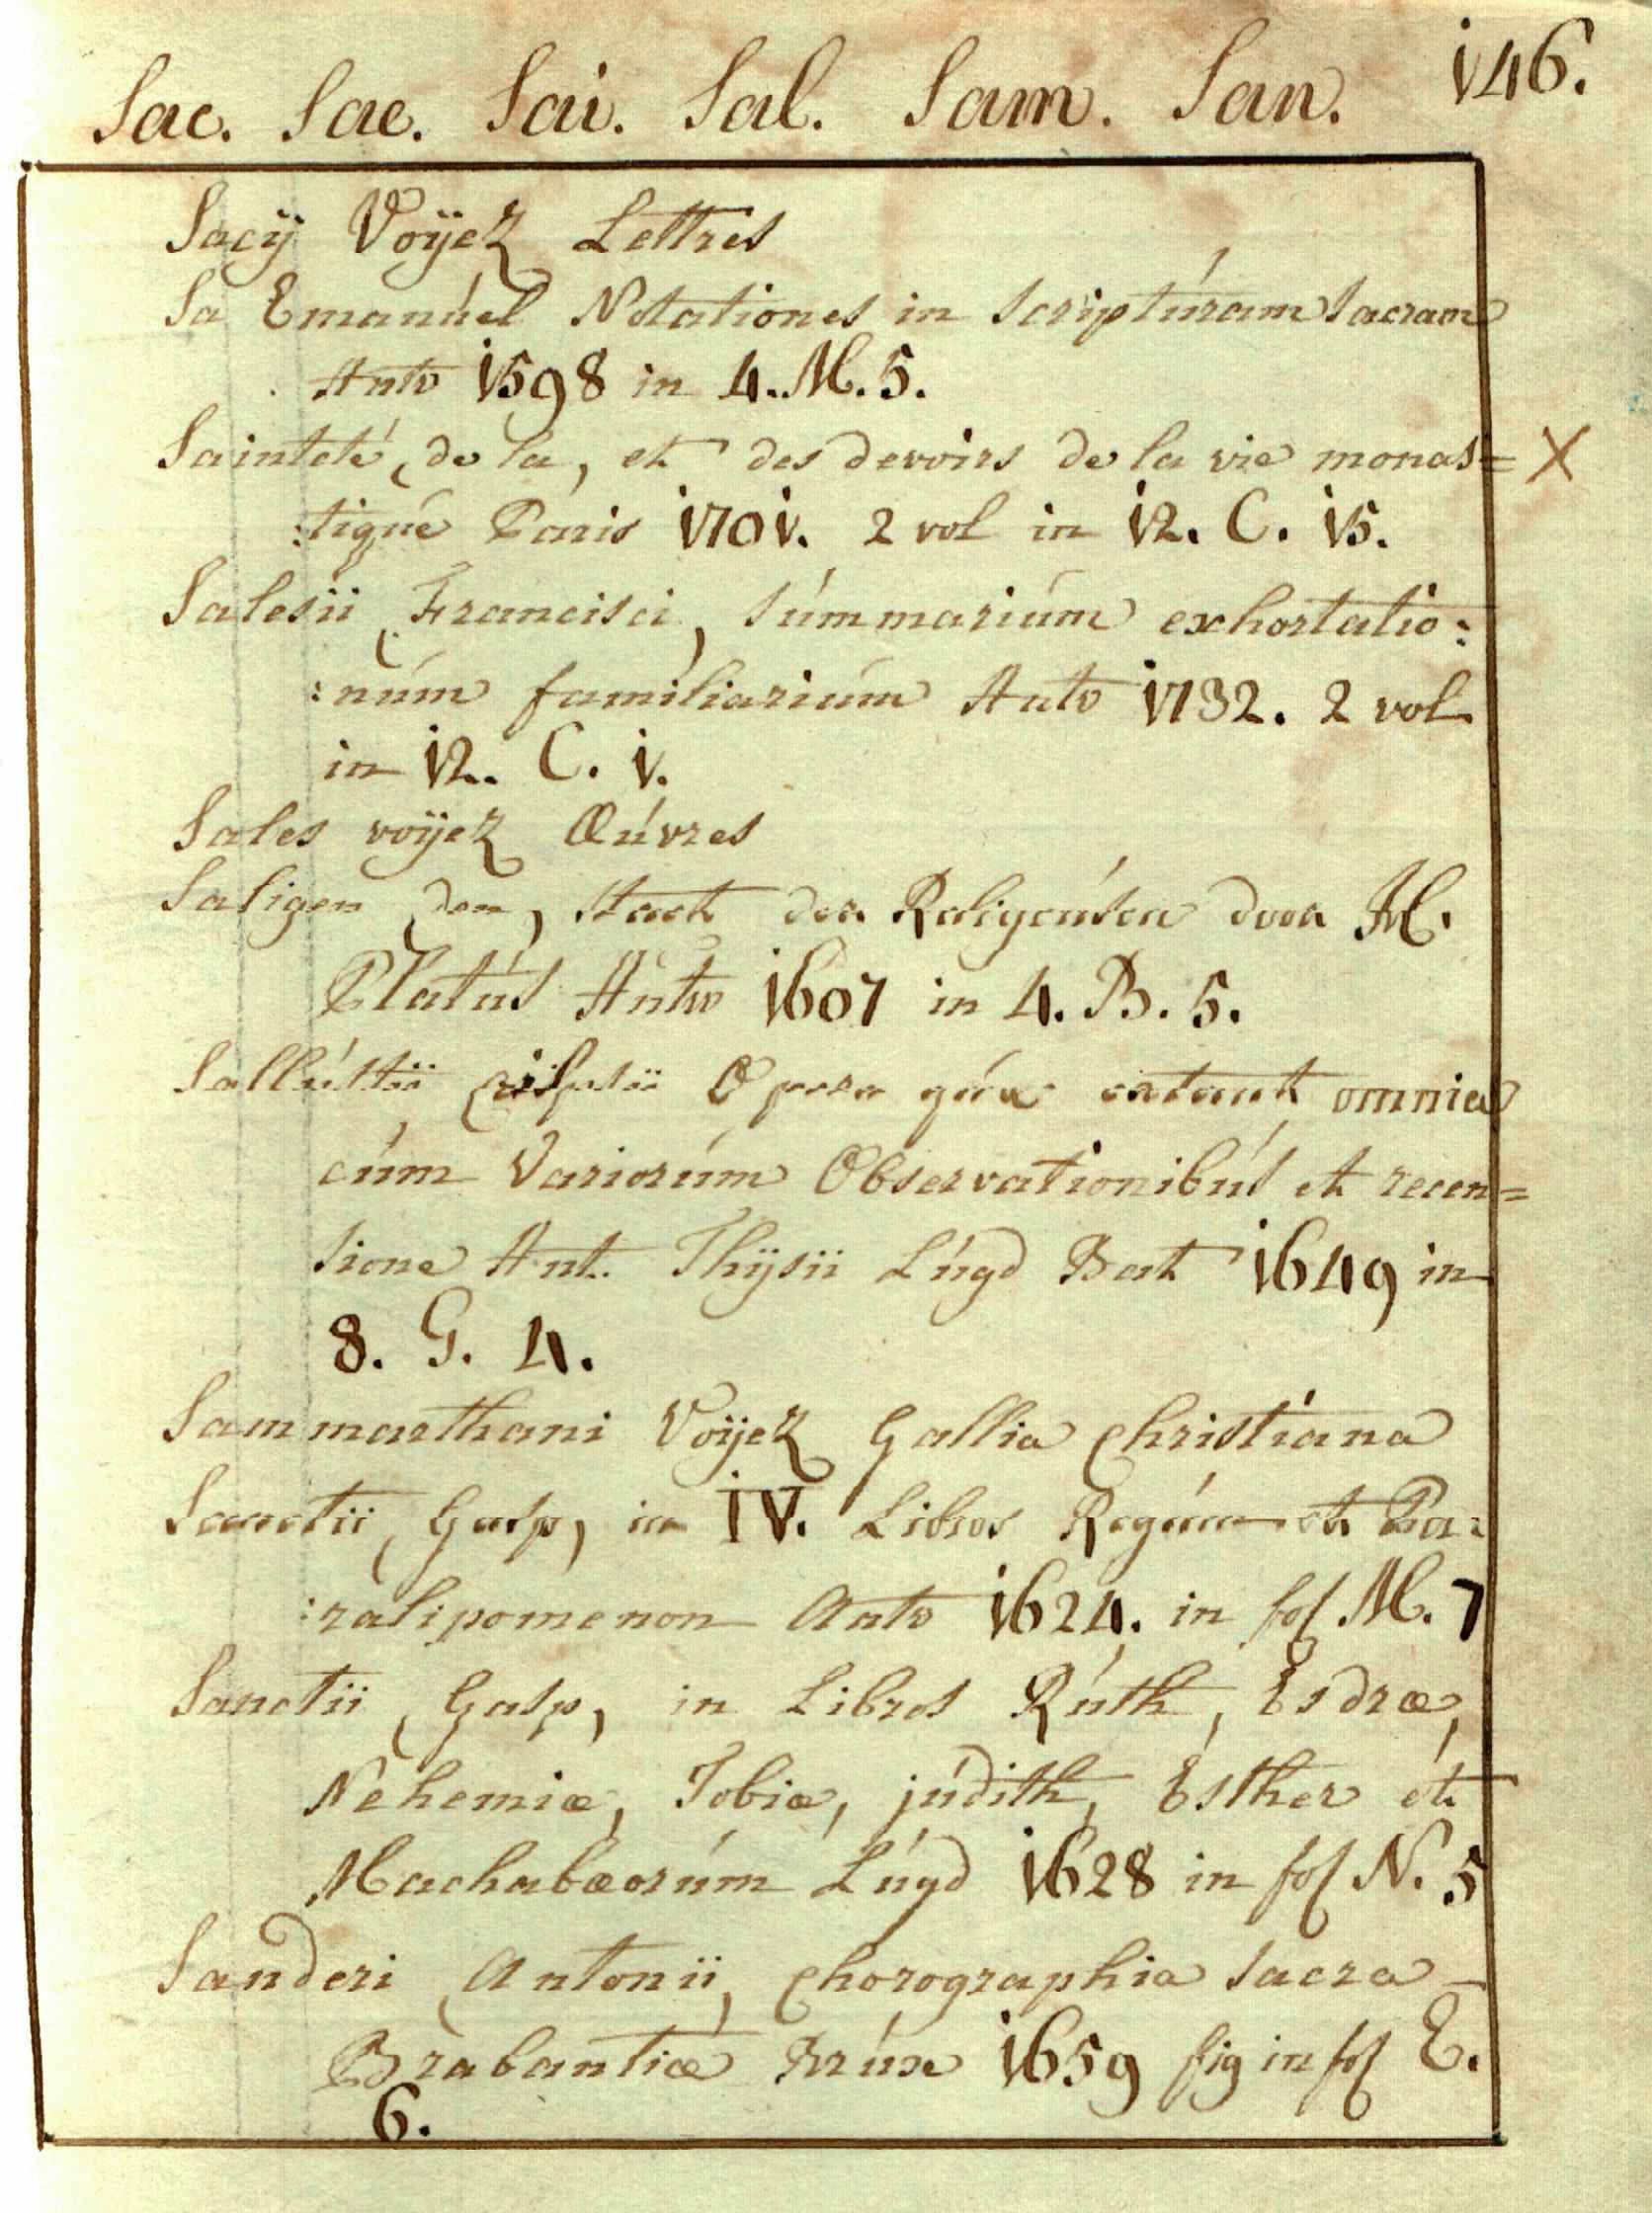 Sac. Sae. Sai. Sal. Sam. San. 146.
Sacÿ Voÿez Lettres
Sa Emanúel Notationes in scriptúram sacram
Antv 1598 in 4. M. 5.
Sainteté (de la) et des devoirs de la vie monas= X
:tiqúe Paris 1701. 2 vol in 12. C. 15.
Salesii (Francisci) súmmariúm exhortatio:
:núm familiariúm Antv 1732. 2 vol
in 12. C. 1.
Sales voÿez Œúvres
Saligen (den) staet der Religeúsen door H.
Platús Antw 1607 in 4. B. 5.
Sallústii (crispii) Opera qúæ extant omnia
cúm Variorúm Observationibús et recen=
sione Ant. Thÿsii Lúgd Bat 1649 in
8. G. 4.
Sammarthani Voÿez Gallia Christiana
Sanctii (Gasp) in IV. Libros Regúm et Pa:
:ralipomenon Antv 1624. in fol M. 7
Sanctii (Gasp) in Libros Rúth, Esdræ,
Nehemiæ, Tobiæ, júdith, Esther et
Machabæorúm Lúgd 1628 in fol N. 5
Sanderi (Antonii) Chorographia sacra
Brabantiæ Brúxe 1659 fig in fol E.
6.